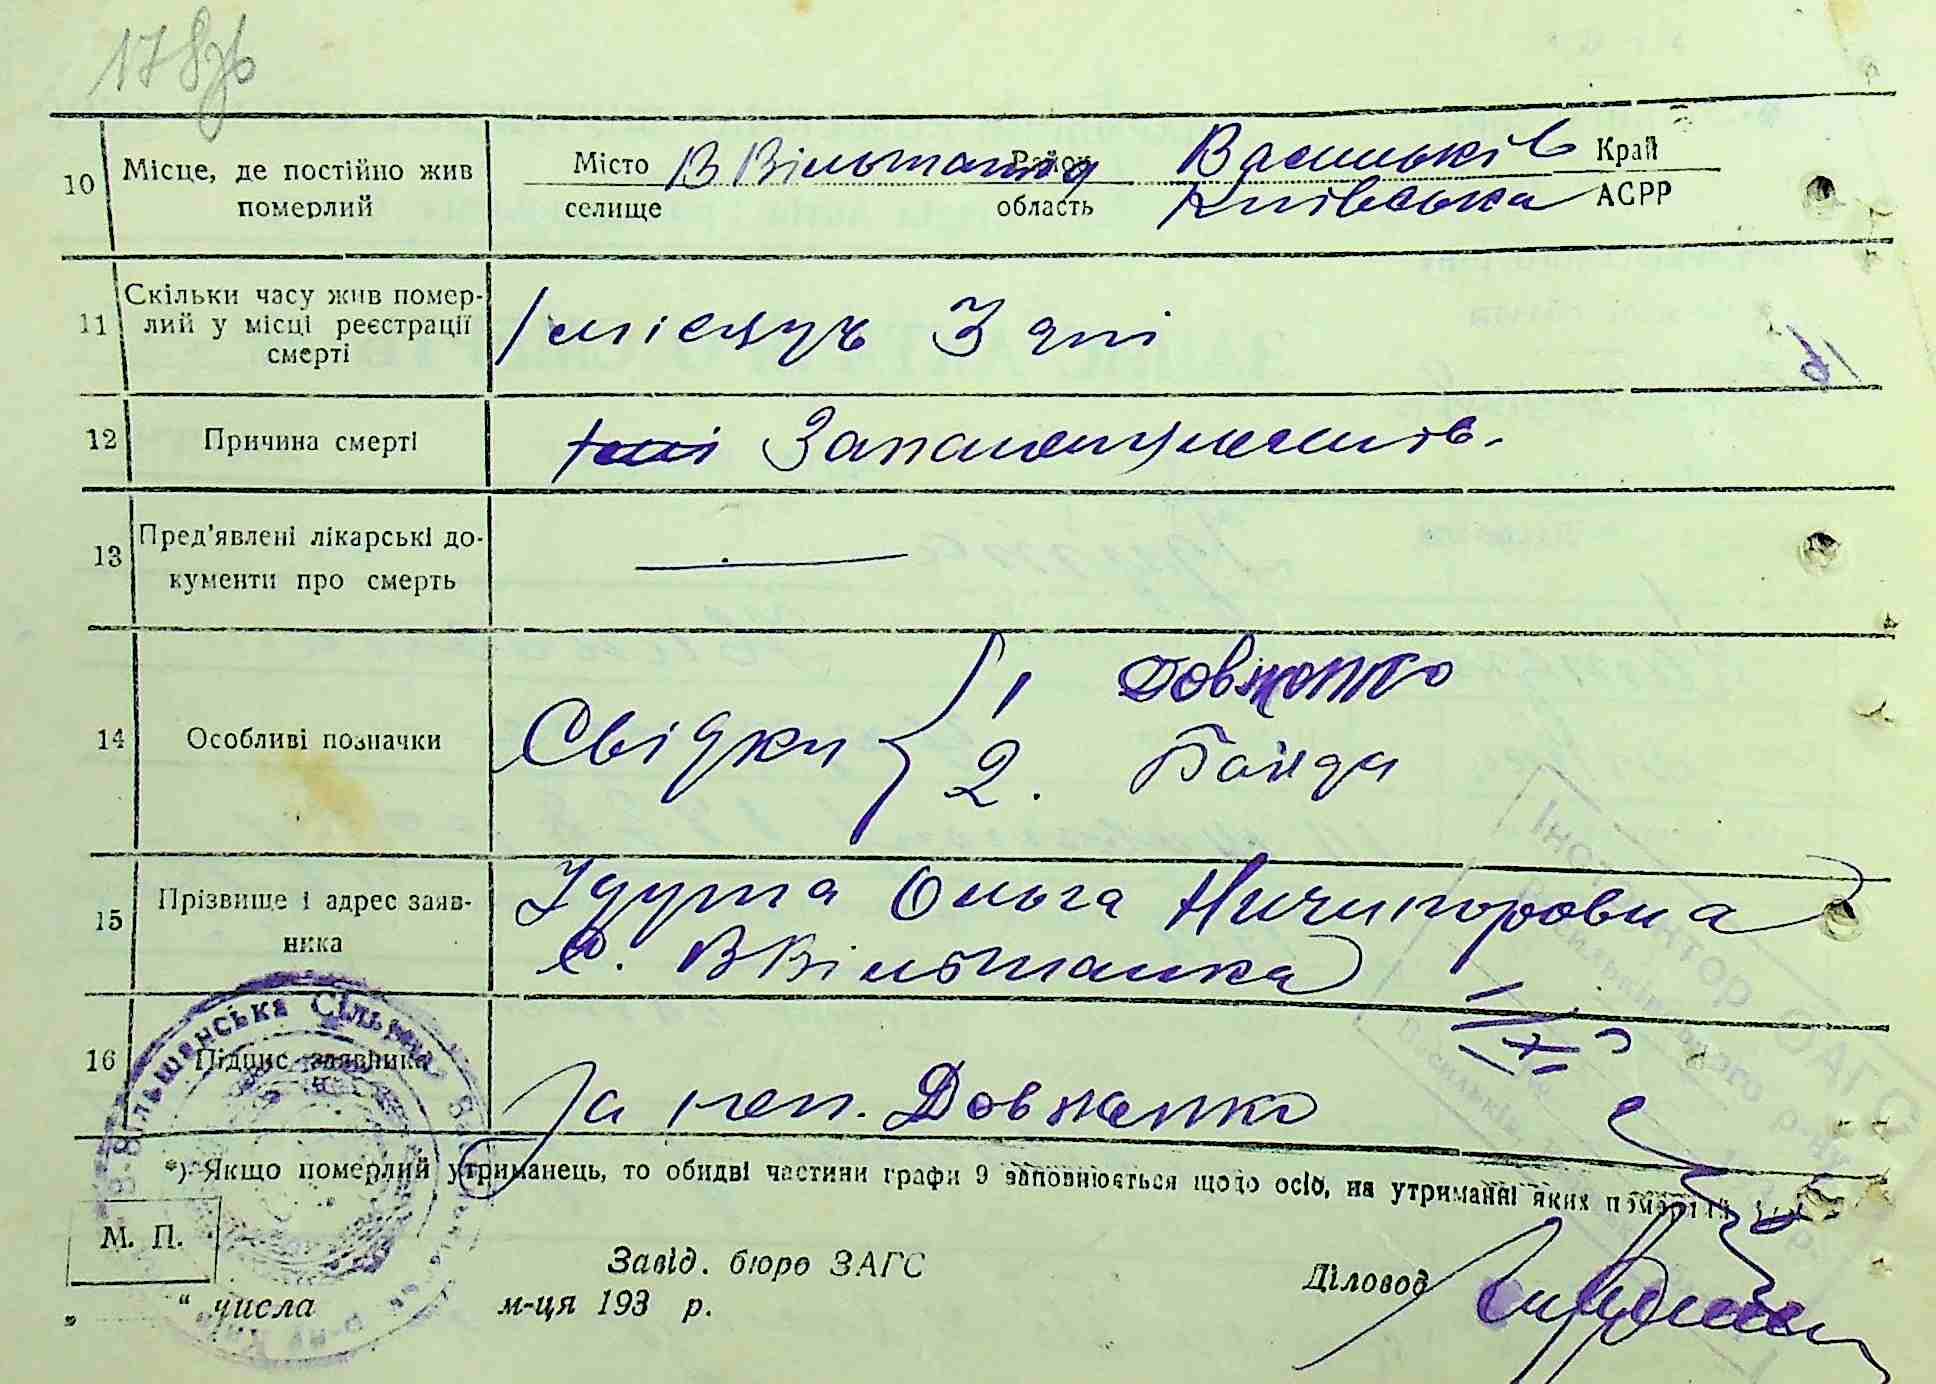 178зв
10 Місце, де постійно жив померлий Місто селище В Вільшанка Район область Васильків Київська Край АСРР
11 Скільки часу жив померлий у місці реєстрації смерті 1 місяць 3 дні
12 Причина смерті Запалення легенів.
13 Пред'явлені лікарські документи про смерть —
14 Особливі позначки Свідки { 1 Довженко
2. Байда
15 Прізвище і адрес заявника Ольга Ничипоровна
с. ВВільшанка
16 Підпис заявника За неп. Довженко
*) Якщо померлий утриманець, то обидві частини графи 9 заповнюється щодо осіб, на утриманні яких
М. П.
Завід. бюро ЗАГС
Діловод
„ “ числа м-ця 193 р.
В-Вільшанська Сільрада
Інспектор ОАГС
Васильківського р-ну